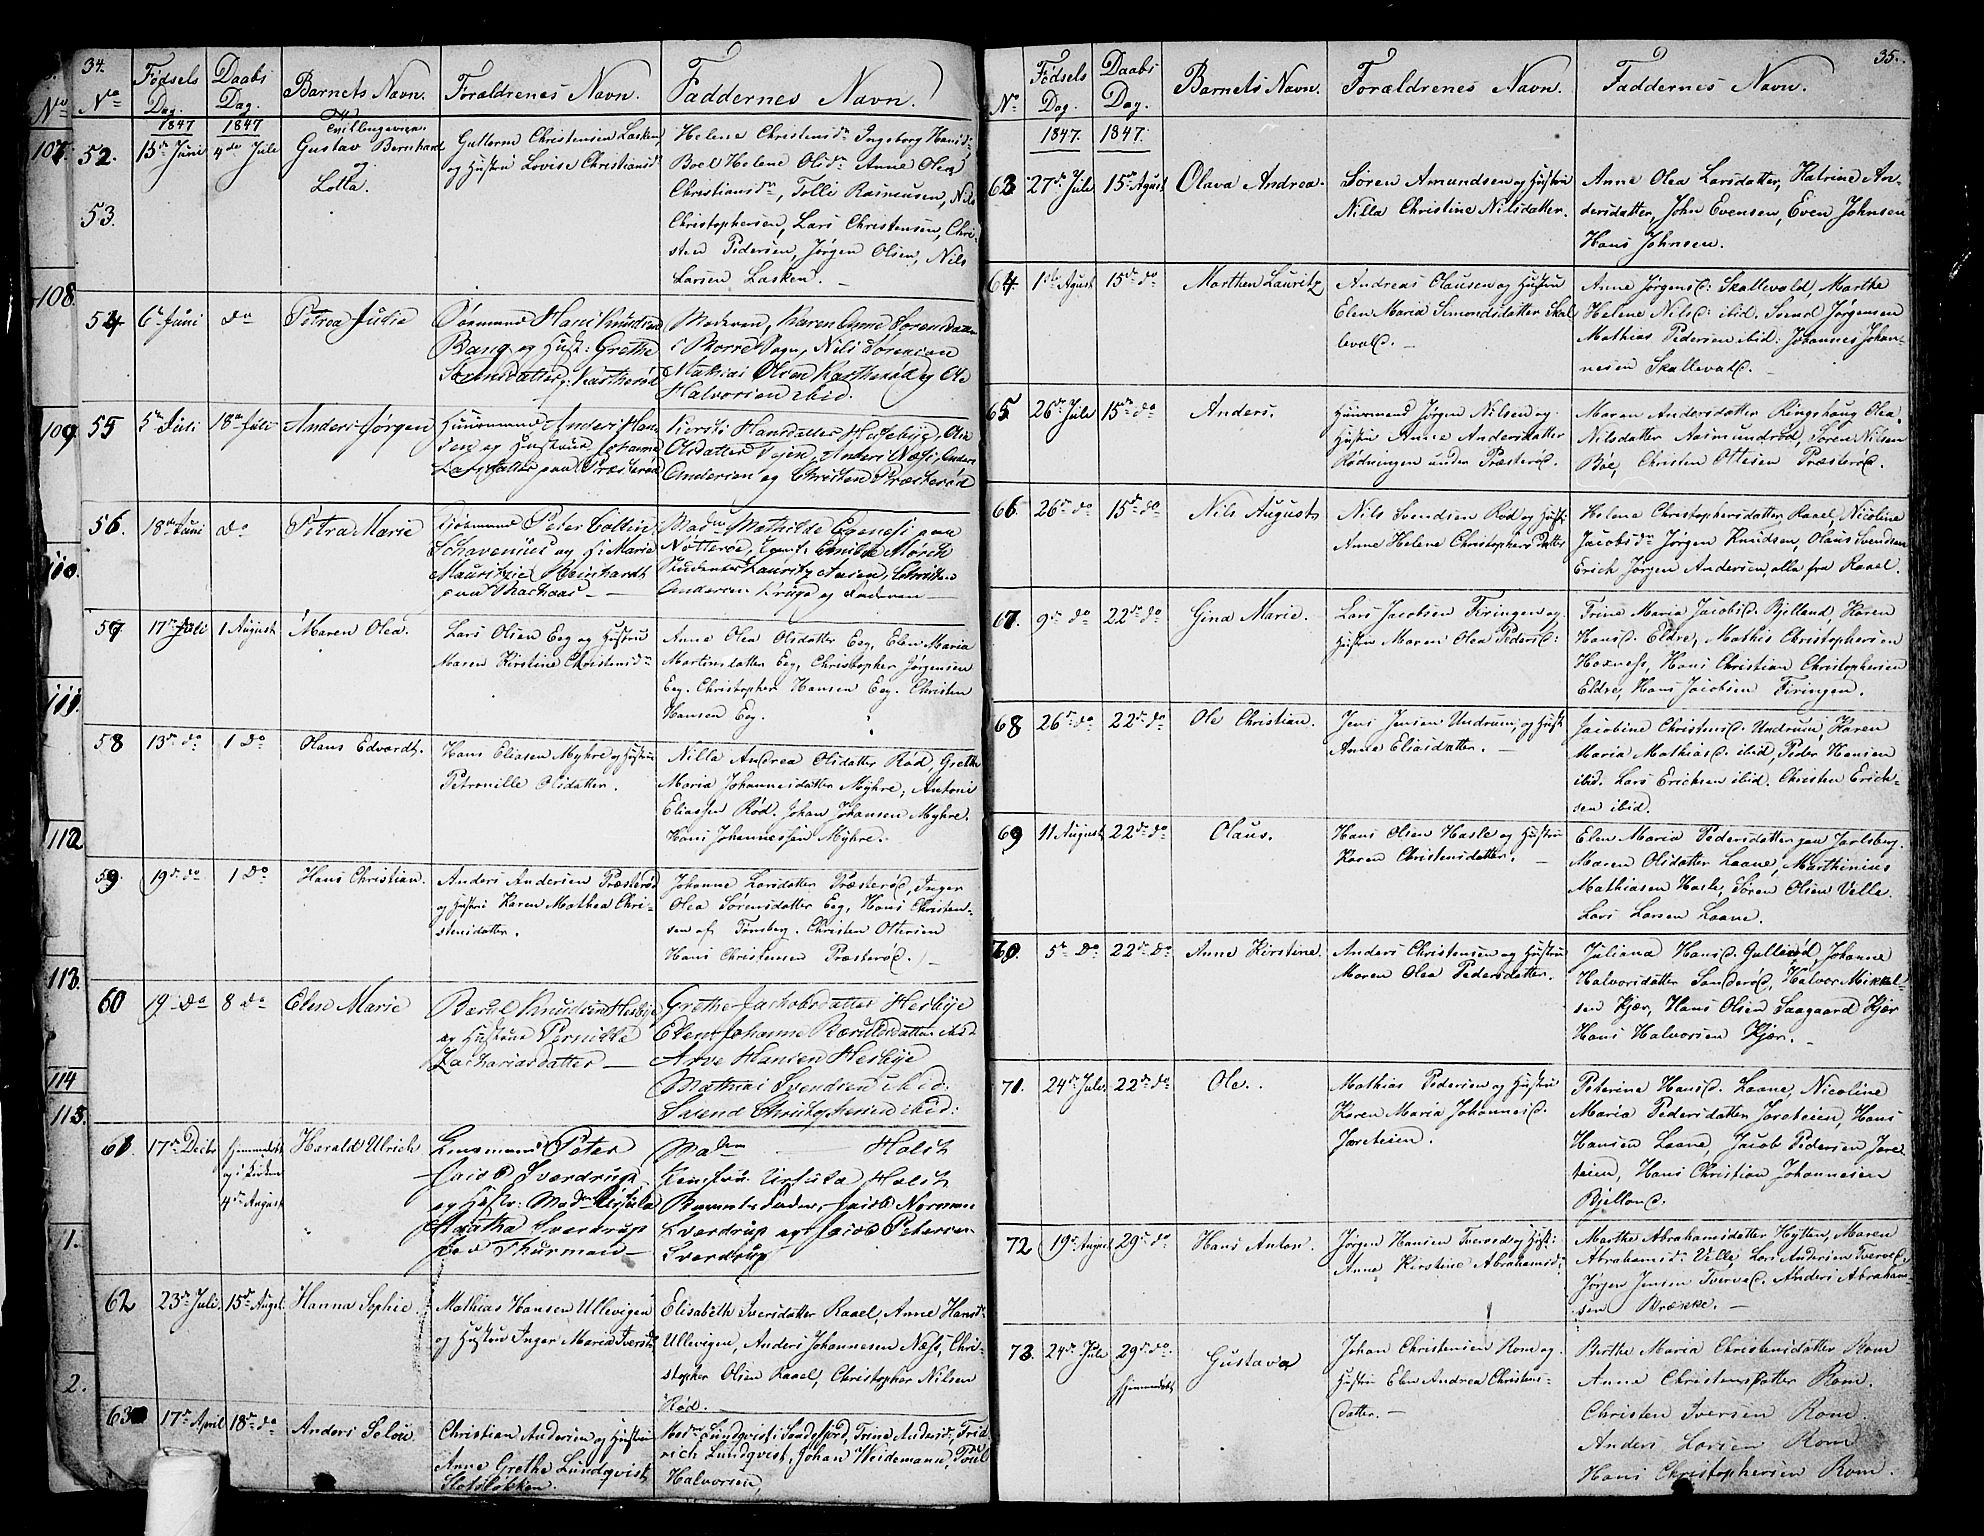 34.
No
Fødsels Dag.
Daabs Dag.
Barnets Navn.
Forældrenes Navn.
Faddernes Navn.
1847
1847
52.
53.
15de Juni
4de Juli
Tvillingerne
Gustav Bernhard
og
Lotta.
Guttorm Christensen Lasken
og Hustru Lovise Christiansd
Helene Christensdr Ingeborg Hansd:
Boel Helene Olsdr Anne Olea
Christiansdr, Tolli Rasmusen, Nils
Christophersen, Lars Christensen, Chri-
sten Pedersen, Jørgen Olsen, Nils
Larsen Lasken. –
54
6te Juni
do
Petrea Judia
Hans Knudsen
Bang og Hust: Grethe
Sørensdatter, Kartherød
Moderen, Karen Anne Sørensdatter
i Borre Sogn, Nils Sørensen
Mathias Olsen Kartherød og Ole
Halvorsen ibid.
55
5te Juli
18de Juli
Anders Jørgen
Huusmand Anders Han
sen og Hustrue Johanne
Larsdatter paa Præsterød
Kirsti Hansdatter Husebye, Olea
Olsdatter Feien, Anders Næss, Anders
Andersen og Christen Præsterød
56.
18de Juni
do
Petra Marie
Peter Coltin
Schavenius og H: Marie
Mauritzie Reinhardt
Madm Mathilde Egenes paa
Nøtterøe, Jomf: Emilie Mørch
Studenter Lauritz Jesien, Christen
Andersen Kruge og Faderen
57.
17de Juli
1 August
Maren Olea.
Lars Olsen Eeg og Hustru
Maren Kirstine Christensdr
Anne Olea Olsdatter Eeg, Elen Maria
Martinsdatter Eeg, Christopher Jørgensen
Eeg. Christopher Hansen Eeg. Christen
Hansen Eeg.
58
13de do
1 do
Hans Edvardt.
Hans Eliasen Myhre og Hustru
Petronille Olsdatter.
Nilla Andrea Olsdatter Rød, Grethe
Maria Johannesdatter Myhre, Antoni
Eliassen Rød. Johan Johansen Myhre.
Hans Johannessen Myhre.
59
19de do
1 do
Hans Christian.
Anders Andersen Præsterød
og Hustru Karen Mathea Chri-
stensdatter.
Johanne Larsdatter Præsterød, Inger
Olea Sørensdatter Eeg, Hans Christen-
sen af Tønsberg. Christen Ottersen
Hans Christensen Præsterød. –
60
19 do
8 do
Elen Marie
Bærul Knudsen Hesbye
og Hustrue Pernille
Zachariasdatter –
Grethe Jachobsdatter Hesbye
Elen Johanne Bærulsdatter ibid
Arne Hansen Hesbye
Mathias Svendsen ibid:
Svend Christophersen ibid:
61
17de Decbr
Hjemmedøbt
og i Kirken
4de August
Harald Ulrich
Lensmand Peter
Jacob Sverdrup
og Hustr: Madm Ursula
Martha Sverdrup
fød Thurman –
Madm Holst
Ursula Holst
Barnets Fader, Jacob Norman
Sverdrup og Jacob Petersen
Sverdrup
62
23de Juli
15de Augst
Hanna Sophie
Mathias Hansen Ullevigen
og Hustru Inger Maria Iversdr
Elisabeth Iversdatter Raael, Anne Hansdr
Ullevigen, Anders Johannesen Næss, Chri-
stopher Olsen Raael, Christopher Nilsen
Rød.
63
17de April
18de do
Anders Selou
Christian Andersen og Hustru
Anne Grethe Lundqvist
Slotsløkken.
Madm Lundqvist, Sandefjord, Trine Andersdr, Frid
rich Lundqvist, Johan Weidemann, Poul
Halvorsen,
35.
No
Fødsels Dag.
Daabs Dag.
Barnets Navn.
Forældrenes Navn.
Faddernes Navn.
1847.
1847.
63
27de Juli
15de Agust
Olava Andrea.
Søren Amundsen og Hustru
Nilla Christine Nilsdatter.
Anne Olea Larsdatter, Katrine An-
dersdatter, John Evensen, Even Johnsen
Hans Johnsen.
64.
1ste Agust
15de do
Marthen Lauritz
Andreas Olausen og Hustru
Elen Maria Simondsdatter Skal
levald. –
Anne Jørgensd: Skallevald, Marthe
Helene Nilsd: ibid. Svend Jørgensen
Mathias Pedersen ibid: Johannes Johan-
nesen Skallevald. –
65
26de Juli
15de do
Anders.
Huusmand Jørgen Nilsen og
Hustru Anne Andersdatter
Rødningen under Præsterød.
Maren Andersdatter Ringshaug Olea
Nilsdatter Aasmundrød, Søren Nilsen
Bøe, Christen Ottesen Præsterød.
66.
26de do
15de do
Nils August
Nils Svendsen Rød og Hustr
Anne Helene Christophersdatter
Helene Christophersdatter, Raael, Nicoline
Jacobsdr Jørgen Knudsen, Olaus Svendsen
Erich Jørgen Andersen, alle fra Raael.
67.
9de do
22de do
Gina Marie.
Lars Jacobsen Firingen og
Hustru Maren Olea Pedersd:
Trine Maria Jacobsd. Bjelland, Karen
Hansd: Eldre, Mathis Christophersen
Hoxness, Hans Christian Christophersen
Eldre, Hans Jacobsen Firingen.
68
26de do
22de do
Ole Christian.
Jens Jensen Undrum, og Hust
Anne Eliasdatter. –
Jacobine Christensd. Undrum, Karen
Maria Mathiasd. ibid, Peder Hansen
ibid. Lars Erichsen ibid. Christen Erich-
sen ibid.
69
11 August
22de do
Olaus.
Hans Olsen Hasle og Hustru
Karen Christensdatter. –
Elen Maria Pedersdatter paa Jarlsberg.
Maren Olsdatter Laane, Marthinius
Mathiasen Hasle, Søren Olsen Velle.
Lars Larsen Laane.
70.
5te do
22de do
Anne Kirstine.
Anders Christensen og Hustru
Maren Olea Pedersdatter.
Juliana Hansd. Gullerød, Johanne
Halvorsdatter Sanderød, Halvor Mikkel-
sen Kjær, Hans Olsen Saagaard Kjær
Hans Halvorsen Kjær. –
71.
24de Juli
22de do
Ole.
Mathias Pedersen og Hustru
Karen Maria Johannesd.
Jareteien.
Peterine Hansd. Laane, Nicoline
Maria Pedersdatter Jareteien, Hans
Hansen Laane, Jacob Pedersen Jare
teien, Hans Christian Johannesen
Bjelland.
72
19de August
29de do
Hans Anton.
Jørgen Hansen Tveved og Hust:
Anne Kirstine Abrahamsd:
Marthe Abrahamsdatter Hytten, Maren
Abrahamsd: Velle, Lars Andersen Tveved.
Jørgen Jensen Tveved. Anders Abraham
sen Brække. –
73.
24de Juli
29de do.
Hjemmedøbt
Gustava
Johan Christensen Rom og
Hustru Elen Andrea Christens-
datter. –
Berthe Maria Christensdatter Rom
Anne Christensdatter Rom.
Christen Iversen Rom.
Anders Larsen Rom
Hans Christophersen Rom.
No
107
108.
109.
110.
111.
112
113.
114
115.
1.
2.